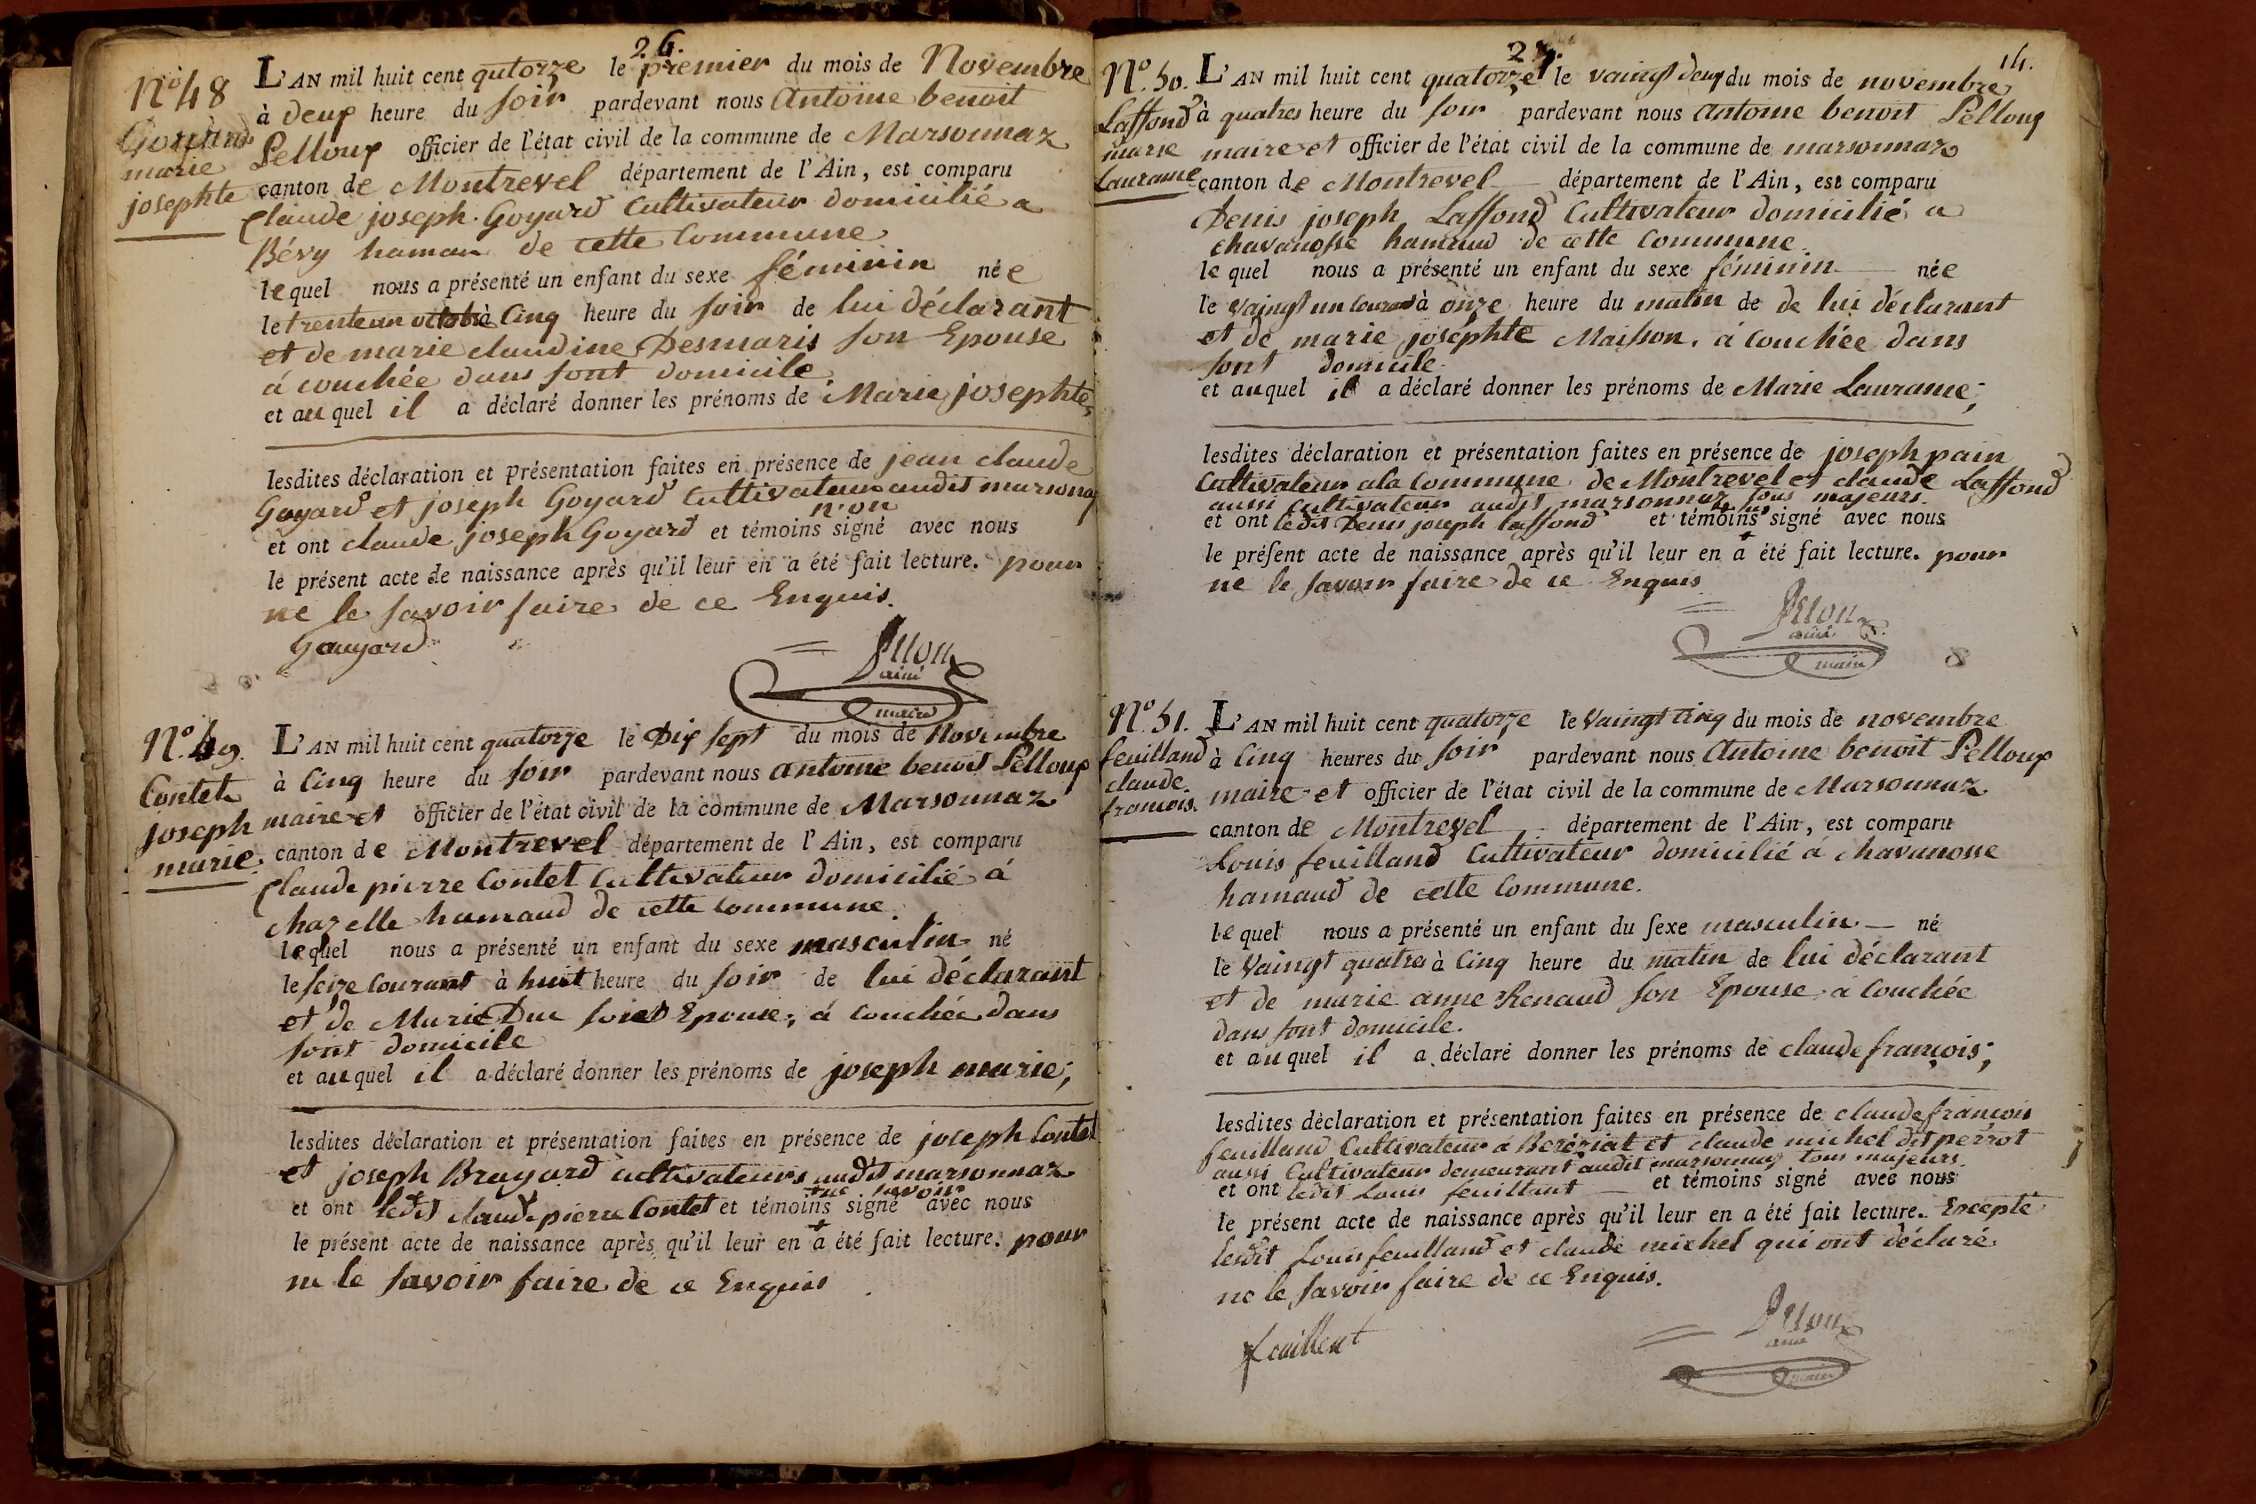 26.
N.º 48
Goyard
marie
josephte
L'AN mil huit cent qutorze le premier du mois de Novembre
à deux heure du soir pardevant nous Antoine benoit
Pelloux officier de l'état civil de la commune de Marsonnaz
canton de Montrevel département de l'Ain, est comparu
Claude joseph Goyard Cultivateur domicilié a
Bévy hamau de cette Commune
lequel nous a présenté un enfant du sexe féminin née
le trenteun octobre à Cinq heure du soir de lui déclarant
et de marie claudine Desmaris son Epouse
á couchée dans sont domicile
et au quel il a déclaré donner les prénoms de Marie josephte,
lesdites déclaration et présentation faites en présence de jean claude
Goyard et joseph Goyard Cultivateur audit marsonay
n'on
et ont claude joseph Goyard et témoins signé avec nous
le présent acte de naissance après qu'il leur en a été fait lecture. pour
ne le savoir faire de ce Enquis.
Gauyard
ainé
maire
N.º 49.
Contet
joseph
marie.
L'AN mil huit cent quatorze le Dix sept du mois de Novembre
à Cinq heure du soir pardevant nous Antoine benoit Pelloux
maire et officier de l'état civil de la commune de Marsonnaz
canton de Montrevel département de l'Ain, est comparu
Claude pierre Contet Cultivateur domicilié á
chazelle hamaud de cette commune.
lequel nous a présenté un enfant du sexe masculin né
le seize Courant à huit heure du soir de lui déclarant
et de Marie Duc son Epouse, á couchée dans
sont domicile
et au quel il a déclaré donner les prénoms de joseph marie,
lesdites déclaration et présentation faites en présence de joseph Contet
et joseph Brayard cultivateurs audit marsonnaz
et ont ledit claude pierre Contet et témoins signé avec nous
le présent acte de naissance après qu'il leur en a été fait lecture. pour
ne le savoir faire de ce Enquis
27.
14.
N.º 50.
Laffond
marie
Lauranne
L'AN mil huit cent quatorze le vaingt deux du mois de novembre
à quatres heure du soir pardevant nous Antoine benoit Pelloux
maire et officier de l'état civil de la commune de marsonnaz
canton de Montrevel département de l'Ain, est comparu
Denis joseph Laffond Cultivateur domicilié a
chavanosse hamaud de cette Commune.
le quel nous a présenté un enfant du sexe féminin née
le vaingt un courant à onze heure du matin de de lui déclarant
et de marie joséphte Maisson, á couchée dans
sont domicile.
et auquel il a déclaré donner les prénoms de Marie Lauranne;
lesdites déclaration et présentation faites en présence de joseph pain
Cultivateur a la Commune de Montrevel et claude Laffond
aussi Cultivateur audit marsonnaz tous majeurs.
et ont ledit Denis joseph Laffond et témoins signé avec nous
le présent acte de naissance après qu'il leur en a été fait lecture. pour
ne le savoir faire de ce Enquis
ainé
maire
N.º 51.
feuilland
claude
francois.
L'AN mil huit cent quatorze le Vaingt cinq du mois de novembre
à Cinq heures du soir pardevant nous Antoine benoit Pelloux
maire et officier de l'état civil de la commune de Marsonnaz
canton de Montrevel département de l'Ain, est comparu
Louis feuilland Cultivateur domicilié á chavanosse
hamaud de cette Commune.
le quel nous a présenté un enfant du sexe masculin né
le Vaingt quatre à Cinq heure du matin de lui déclarant
et de marie anne Renaud son Epouse á Couchée
dans sont domicile.
et au quel il a déclaré donner les prénoms de claude françois;
lesdites déclaration et présentation faites en présence de claude françois
feuilland Cultivateur á Beréziat et claude michel dit perrot
aussi Cultivateur demeurant audit marsonnaz tous majeurs.
et ont ledit Louis feuillant et témoins signé avec nous
le présent acte de naissance après qu'il leur en a été fait lecture. Excepté
ledit Louis feuilland et claude michel qui ont déclaré
ne le savoir faire de ce Enquis.
feuillent
ainé
maire